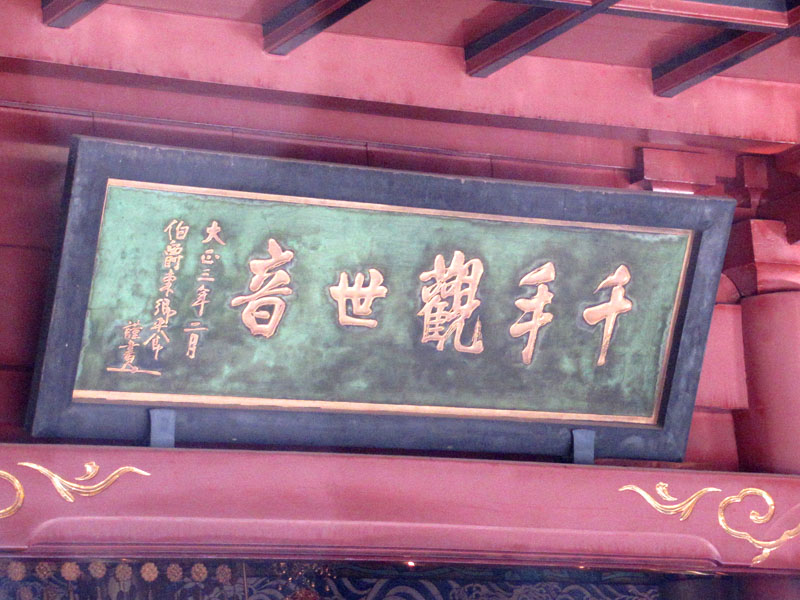 千手觀世音
大正三年二月
伯爵東郷平八郎
謹書